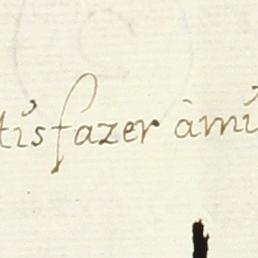 tisfazer àmi